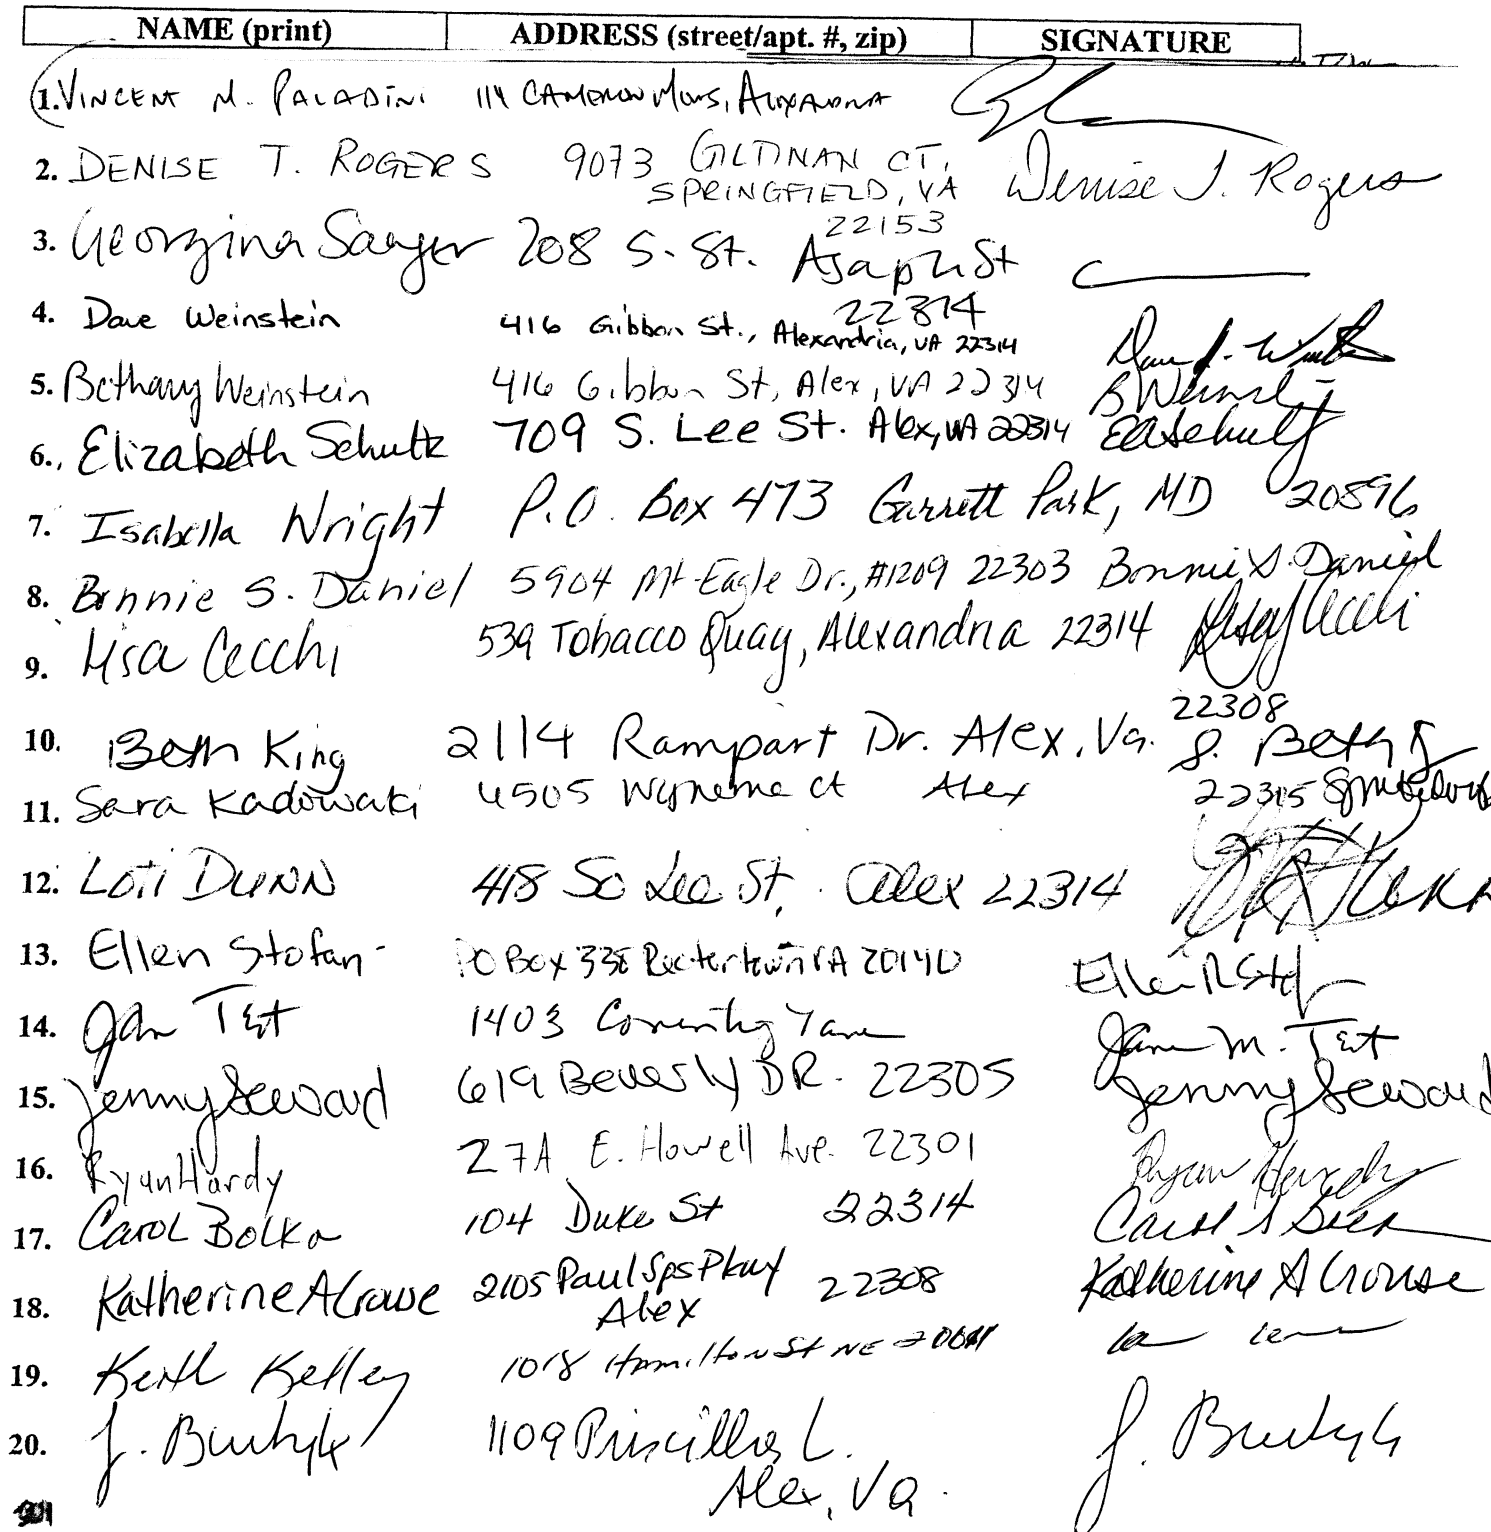 NAME (print) ADDRESS (street/apt. #, zip) SIGNATURE
1. VINCENT M. PALADINI 114 CAMERON MEWS, ALEXANDRIA
2. DENISE T. ROGERS 9073 GILTINAN CT, Denise T. Rogers
SPRINGFIELD, VA
22153
3. Georgina Saeger 208 S. St. Asaph St
22314
4. Dave Weinstein 416 Gibbon St., Alexandria, VA 22314
5. Bethany Weinstein 416 Gibbon St, Alex, VA 22314 B Weinst
6. Elizabeth Schultz 709 S. Lee St. Alex, VA 22314 EASchultz
7. Isabella Wright P.O. Box 473 Garrett Park, MD 20896
8. Bonnie S. Daniel 5904 Mt Eagle Dr., #1209 22303 Bonnie S. Daniel
9. Lisa Cecchi 539 Tobacco Quay, Alexandria 22314 Cecchi
22308
10. Beth King 2114 Rampart Dr. Alex, Va. S. Beth K
11. Sara Kadowaki 4505 ct Alex 22315
12. LOTI DUNN 418 So Lee St. Alex 22314
13. Ellen Stofan PO Box 338 Rectortown VA 20140 Ellen R Stof
14. Jan Tet 1403 Coventry Lane Jan M. Tet
15. Jenny Seward 619 Beverly DR. 22305 Jenny Seward
16. Ryan Hardy 27A E. Howell Ave. 22301 Ryan Hardy
17. CAROL BOLKA 104 Duke St 22314 Carol
18. Katherine A Crouse 2105 Paul Sps Pkwy 22308 Katherine A Crouse
Alex
19. Keith Kelley 1018 Hamilton St NE 20011
20. J. 1109 Priscilla L. J.
Alex, Va.